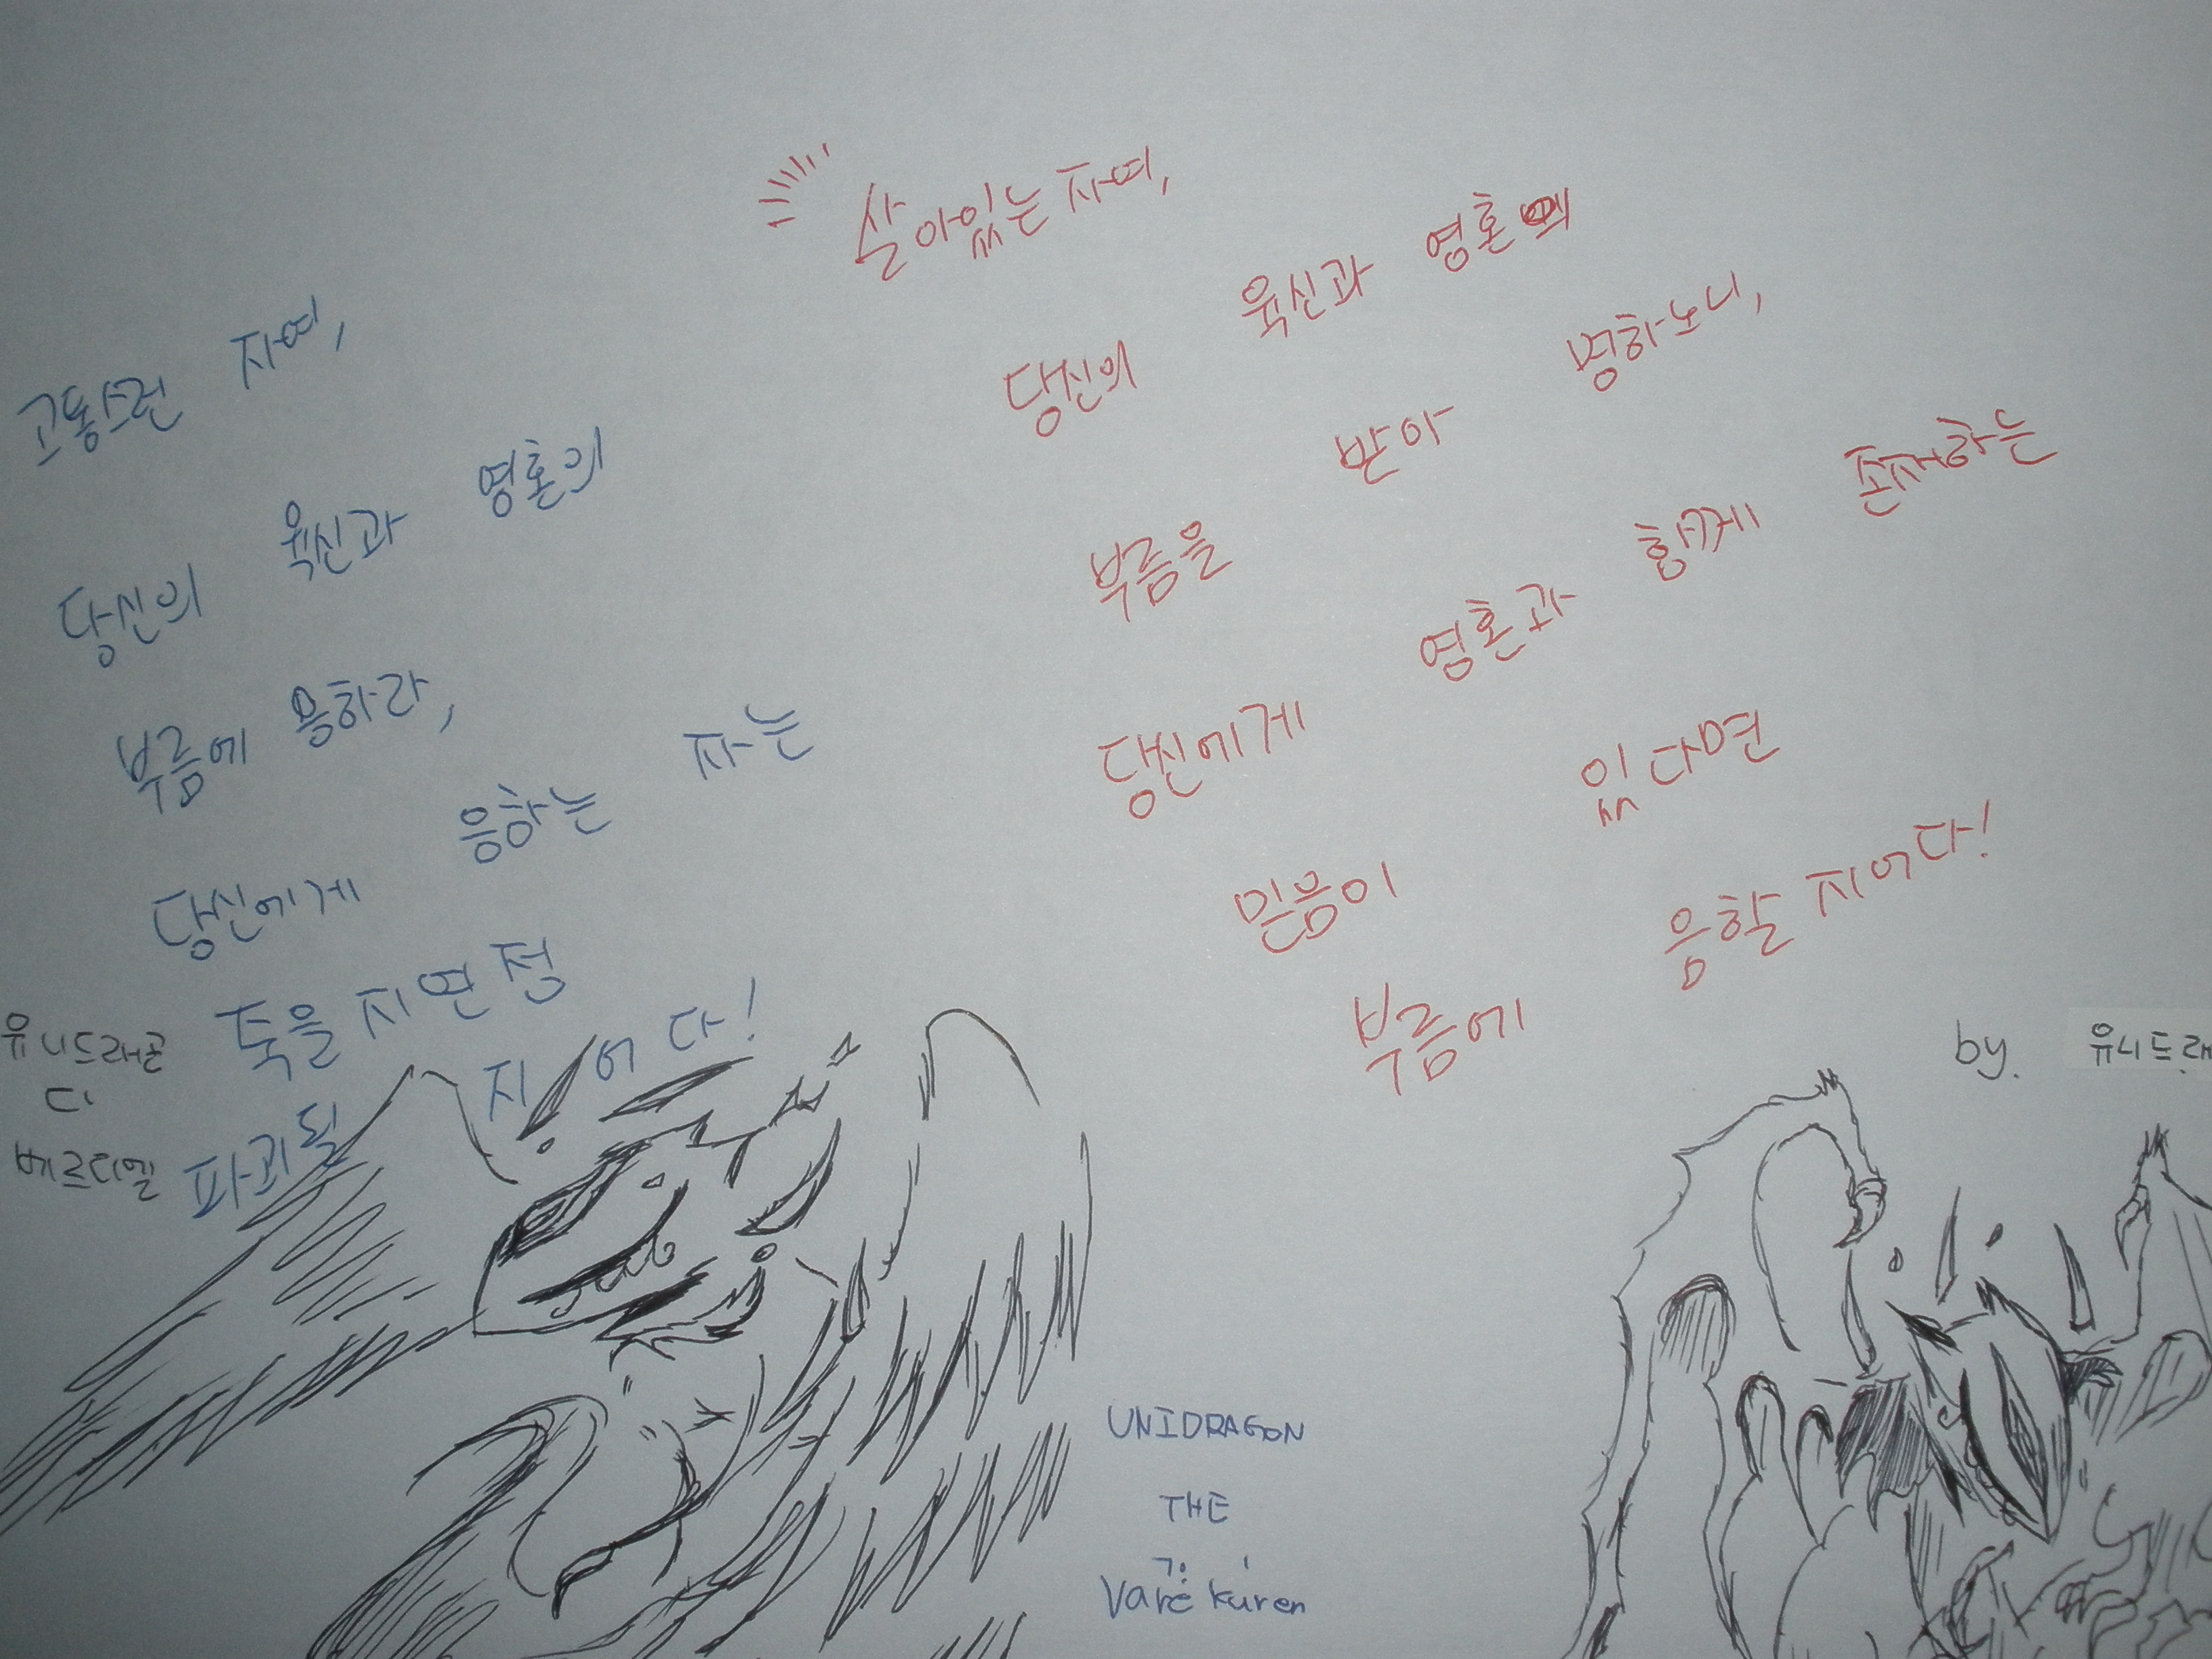 고통스런 자여,
당신의 육신과 영혼의
부름에 응하라,
당신에게 응하는 자는
죽을지언정
파괴될 지어다!
유니드래곤
디
베르디엘
살아있는 자여,
당신의 육신과 영혼의
부름을 받아 명하노니,
당신에게 영혼과 함께 존재하는
믿음이 있다면
부름에 응할지어다!
by. 유니드래
UNIDRAGON
THE
Varé kúren